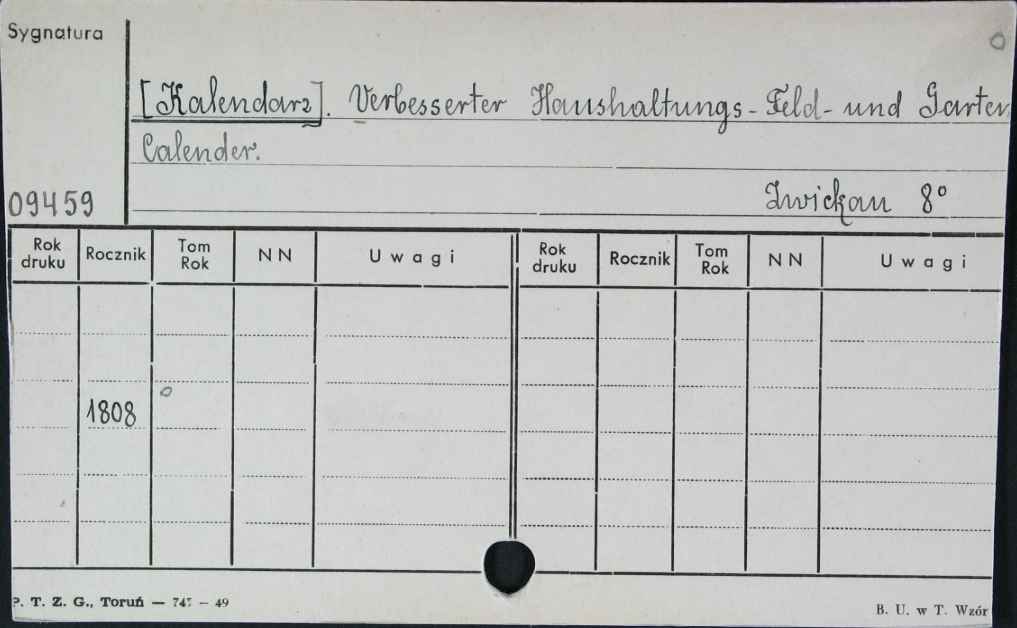 Sygnatura
[Kalendarz]. Verbesserter Haushaltungs-Feld- und Garten
Calender.
09459
Zwickau 8°
Rok druku Rocznik Tom Rok NN Uwagi Rok druku Rocznik Tom Rok NN Uwagi
1808
P. T. Z. G., Toruń — 747 — 49
B. U. w T. Wzór